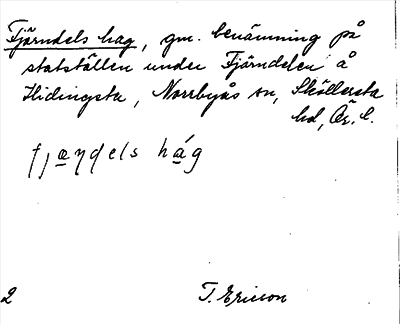 Fjärndels hag, gm. benämning på
statställen under Fjärndelen å
Hidingsta, Norrbyås sn, Sköllersta
hd, Ör. l.
fjæɳɖels hág
2 T. Ericson